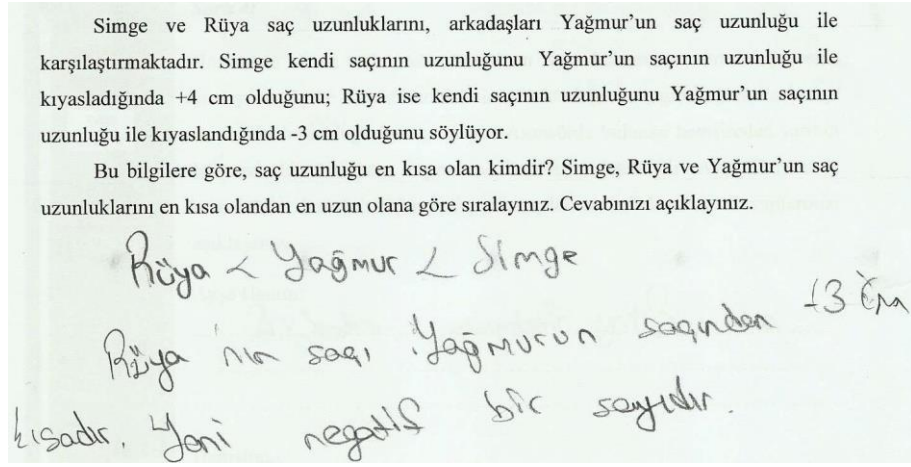 Simge ve Rüya saç uzunluklarını, arkadaşları Yağmur’un saç uzunluğu ile
karşılaştırmaktadır. Simge kendi saçının uzunluğunu Yağmur’un saçının uzunluğu ile
kıyasladığında +4 cm olduğunu; Rüya ise kendi saçının uzunluğunu Yağmur’un saçının
uzunluğu ile kıyaslandığında -3 cm olduğunu söylüyor.
Bu bilgilere göre, saç uzunluğu en kısa olan kimdir? Simge, Rüya ve Yağmur’un saç
uzunluklarını en kısa olandan en uzun olana göre sıralayınız. Cevabınızı açıklayınız.
Rüya < Yağmur < Simge
Rüya'nın saçı Yağmurun saçından -3 cm
kısadır. Yani negatif bir sayıdır.